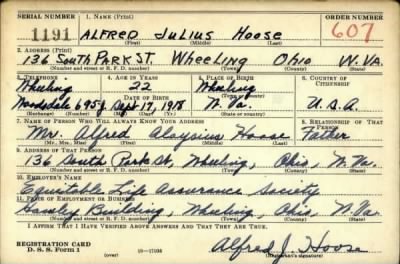 SERIAL NUMBER 1. NAME (Print) ORDER NUMBER
1191 ALFRED JULIUS HOOSE 607
(First) (Middle) (Last)
2. ADDRESS (Print)
136 SOUTH PARK ST. WHEELING OHIO W.VA.
(Number and street or R. F. D. number) (Town) (County) (State)
3. TELEPHONE 4. AGE IN YEARS 5. PLACE OF BIRTH 6. COUNTRY OF CITIZENSHIP
Wheeling 22 Wheeling
DATE OF BIRTH (Town or county)
Woodsdale 695J Sept. 17, 1918 W. Va. U.S.A.
(Exchange) (Number) (Mo.) (Day) (Yr.) (State or country)
7. NAME OF PERSON WHO WILL ALWAYS KNOW YOUR ADDRESS 8. RELATIONSHIP OF THAT PERSON
Mr. Alfred Aloysius Hoose Father
(Mr., Mrs., Miss) (First) (Middle) (Last)
9. ADDRESS OF THAT PERSON
136 South Park St., Wheeling, Ohio, W. Va.
(Number and street or R. F. D. number) (Town) (County) (State)
10. EMPLOYER'S NAME
Equitable Life Assurance Society
11. PLACE OF EMPLOYMENT OR BUSINESS
Building, Wheeling, Ohio, W. Va.
(Number and street or R. F. D. number) (Town) (County) (State)
I AFFIRM THAT I HAVE VERIFIED ABOVE ANSWERS AND THAT THEY ARE TRUE.
REGISTRATION CARD
D. S. S. Form 1 (over) 16—17105 Alfred J. Hoose
(Registrant's signature)